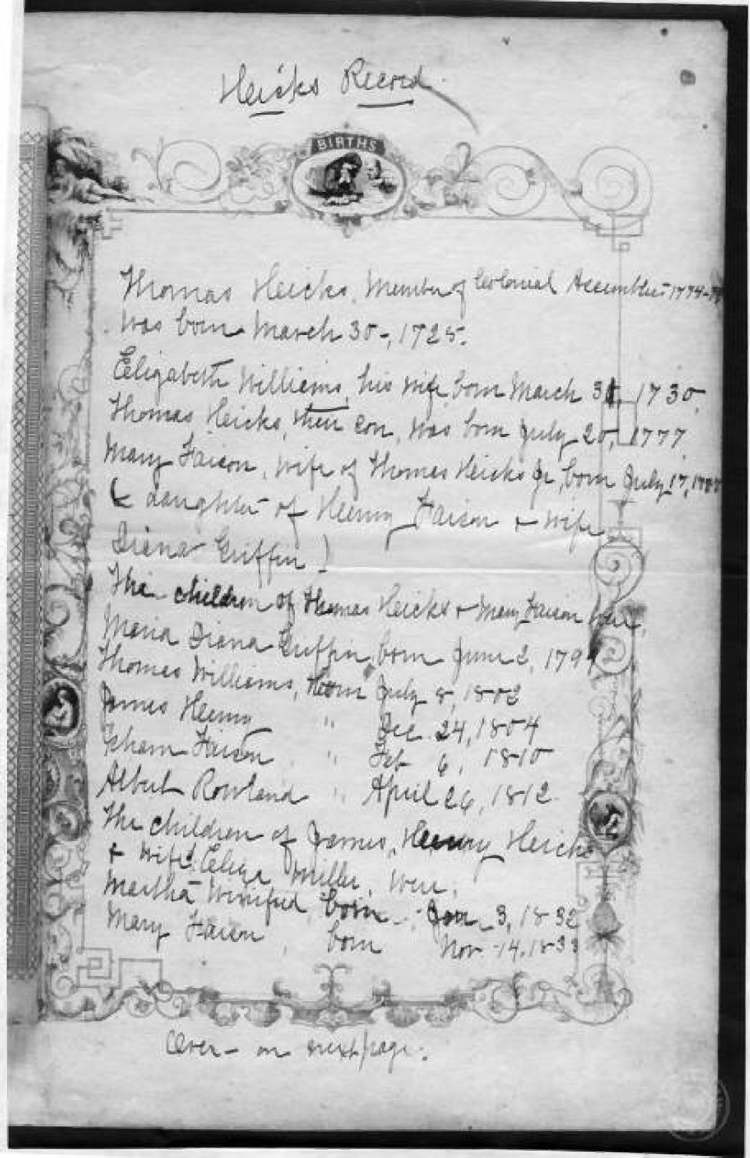 Heicks Record
BIRTHS
Thomas Heicks, Member of Colonial Assemblies 1774-
was born March 30-, 1725.
Eelizabeth Williams, his wife, born March 31, 1730,
Thomas Heicks, their son, was born July 20, 1777
Mary Faison, wife of Thomas Heicks Jr, born July 17,
( daughter of Heenry Faison & wife
Diana Griffin )
The children of Thomas Heicks & Mary Faison were,
Maria Diana Griffin, born June 2, 179
Thomas Williams, born July 8, 1802
James Heenry " Dec 24, 1804
Isham Faison " Feb 6, 1810
Albert Rowland " April 26, 1812
The children of James Heenry Heicks
& wife Eeliza Miller, were,
Martha Winifred, born Jan 3, 1832
Mary Faison, born Nov 14, 1833
Over - on next page.